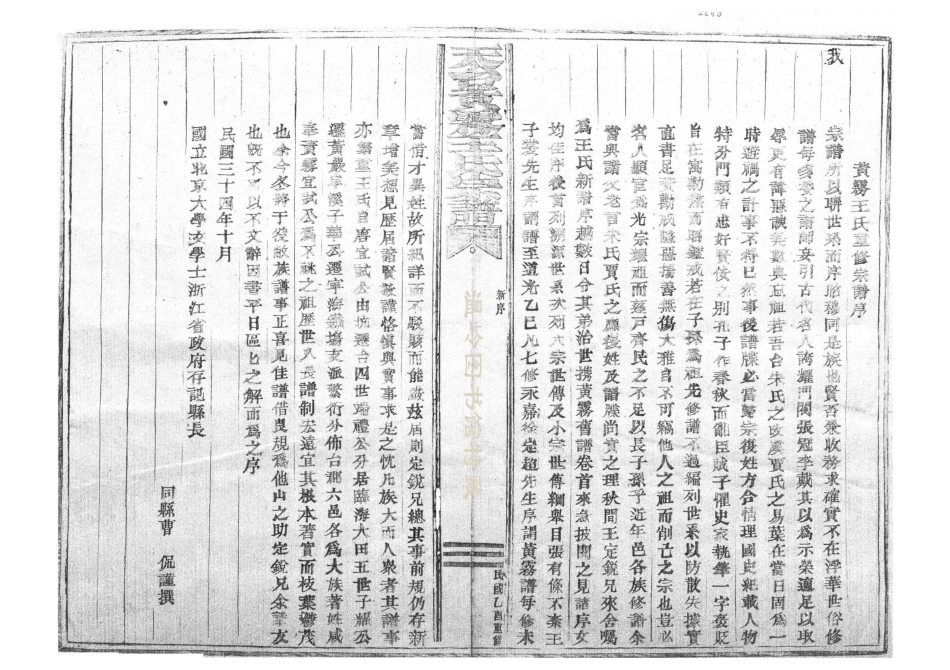 黃霧王氏重修宗譜序
我
宗譜所以聯世系而序昭穆同是族也賢否兼收務求確實不在浮華世俗修
譜每多委之譜師妄引古代名人誇耀門閥張冠李戴其以為示榮適足以取
辱更有諱賤諛美數典忘祖若吾台朱氏之改慶賈氏之易葉在當日固為一
時避禍之計事不得已然事後譜牒必當歸宗復姓方合情理國史紀載人物
特分門類有忠奸賢佞之別孔子作春秋而亂臣賊子懼史家執筆一字褒貶
自在寓勸懲而昭鑑戒若在子孫為祖先修譜不過編列世系以防散失據實
直書足矣勸戒隱惡揚善無傷大雅自不可竊他人之祖而削亡之宗也豈必
名人顯宦為光宗耀祖而蓽戶齊民之不足以長子孫乎近年邑各族修譜余
嘗與譜父老言朱氏賈氏之應復姓及譜牒尚實之理秋間王定銳兄來舍囑
為王氏新譜序越數日令其弟治世携黃霧舊譜卷首來急披閱之見諸序文
均佳序後首列淵源世系次列大宗世傳及小宗世傳綱舉目張有條不紊王
子裳先生序謂譜至道光乙巳凡七修永嘉徐定超先生序謂黃霧譜每修未
新序
民國乙酉重修
嘗借才異姓故所紀詳而不駁賅而能嚴茲届則定銳兄總其事前規仍存新
章增美想見歷屆諸賢敬謹恪慎與實事求是之忱凡族大而人衆者其譜事
亦綦重王氏自唐宜試公由杭遷台四世瑞禮公分居臨海大田五世子耀公
遷黃巖寧溪子華公遷寧海鐵塲支派繁衍分佈台郡六邑各為大族著姓咸
奉黃霧宜試公為不祧之祖歷世久長譜制宏遠宜其根本著實而枝葉鬱茂
也余今冬將于役敝族譜事正喜見佳譜借爲規為他山之助定銳兄余摯友
也旣不可以不文辭因書平日區匕之解而為之序
民國三十四年十月
國立北京大學文學士浙江省政府存記縣長
同縣曹 侃謹撰